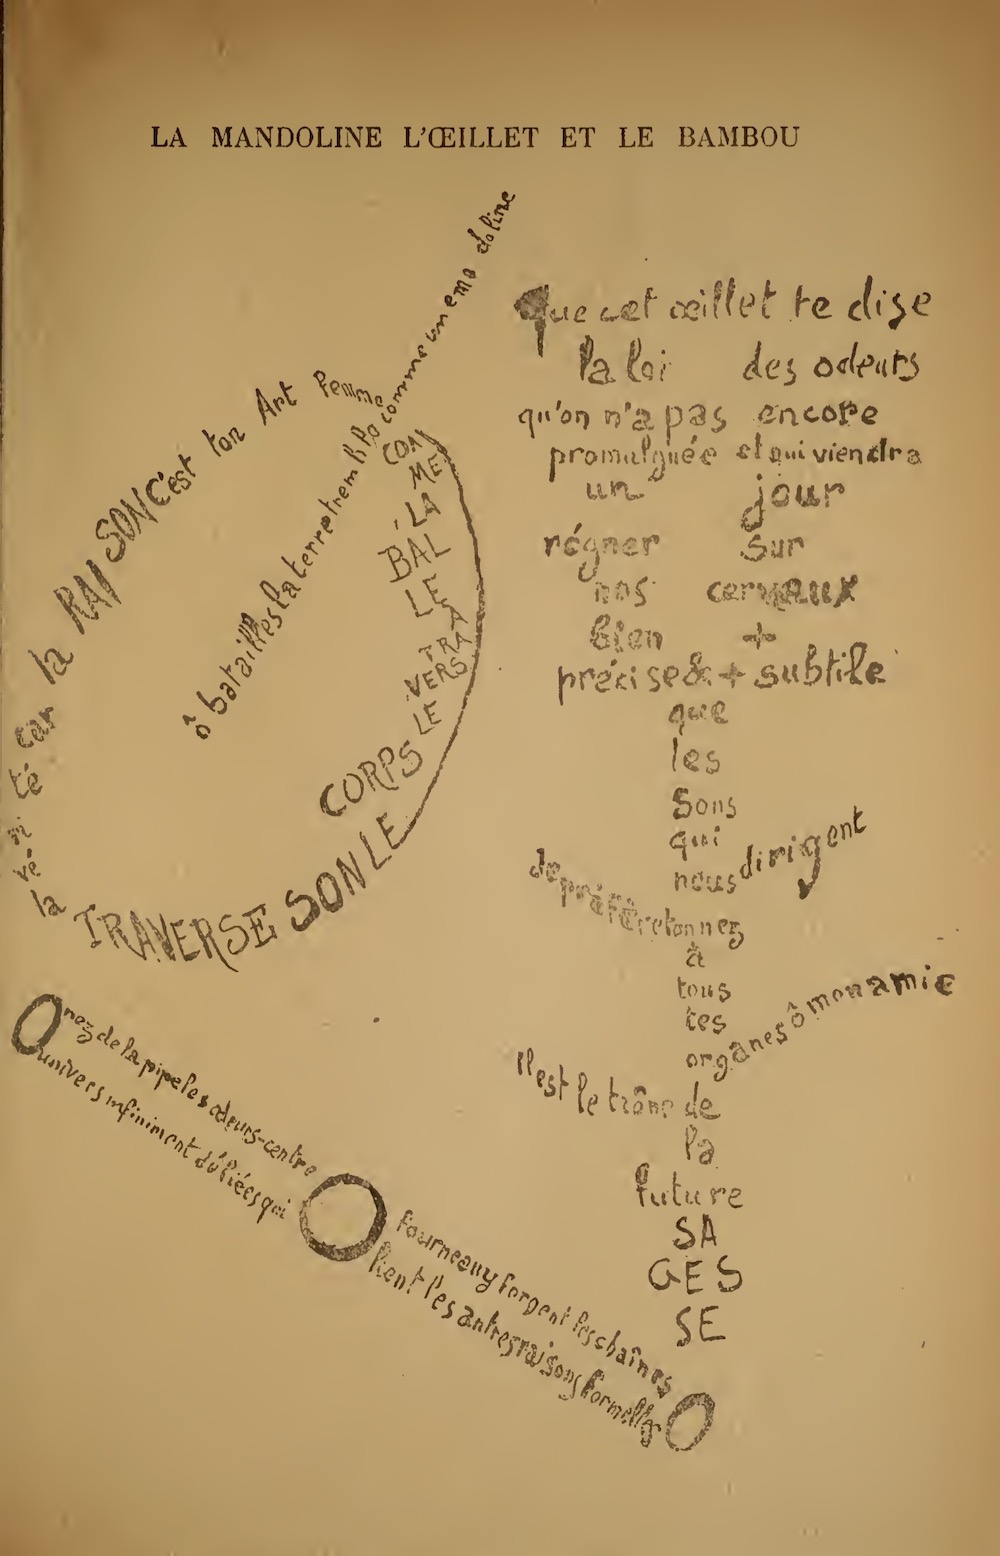 LA MANDOLINE L'ŒILLET ET LE BAMBOU
ô batailles la terre tremble comme une mandoline
COM
ME
LA
BAL
LE
À
TRA
VERS
LE
CORPS
LE SON TRAVERSE
la vé ri té car la RAISON C'est ton Art Femme
Que cet œillet te dise
la loi des odeurs
qu'on n'a pas encore
promulguée et qui viendra
un jour
régner sur
nos cerveaux
bien +
précise & + subtile
que
les
Sons
qui
nous dirigent
Je préfère ton nez
à
tous
tes
organes ô mon amie
Il est le trône de
la
future
SA
GES
SE
O nez de la pipe les odeurs-centre O fourneau y forgent les chaînes O
univers infiniment déliées qui lient les autres raisons formelles